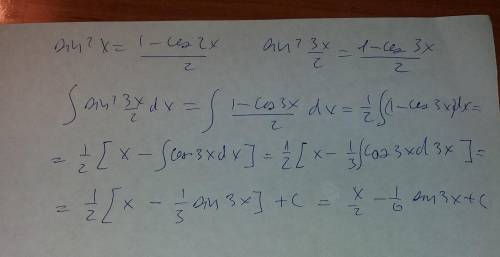 sin² x = (1 - cos 2x)/2    sin² 3x/2 = (1 - cos 3x)/2
∫ sin² 3x/2 dx = ∫ (1 - cos 3x)/2 dx = 1/2 ∫ (1 - cos 3x) dx =
= 1/2 [x - ∫ cos 3x dx] = 1/2 [x - 1/3 ∫ cos 3x d 3x] =
= 1/2 [x - 1/3 sin 3x] + C = x/2 - 1/6 sin 3x + C